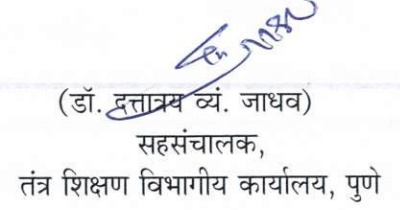 (डॉ. दत्तात्रय व्यं. जाधव)
सहसंचालक,
तंत्र शिक्षण विभागीय कार्यालय, पुणे